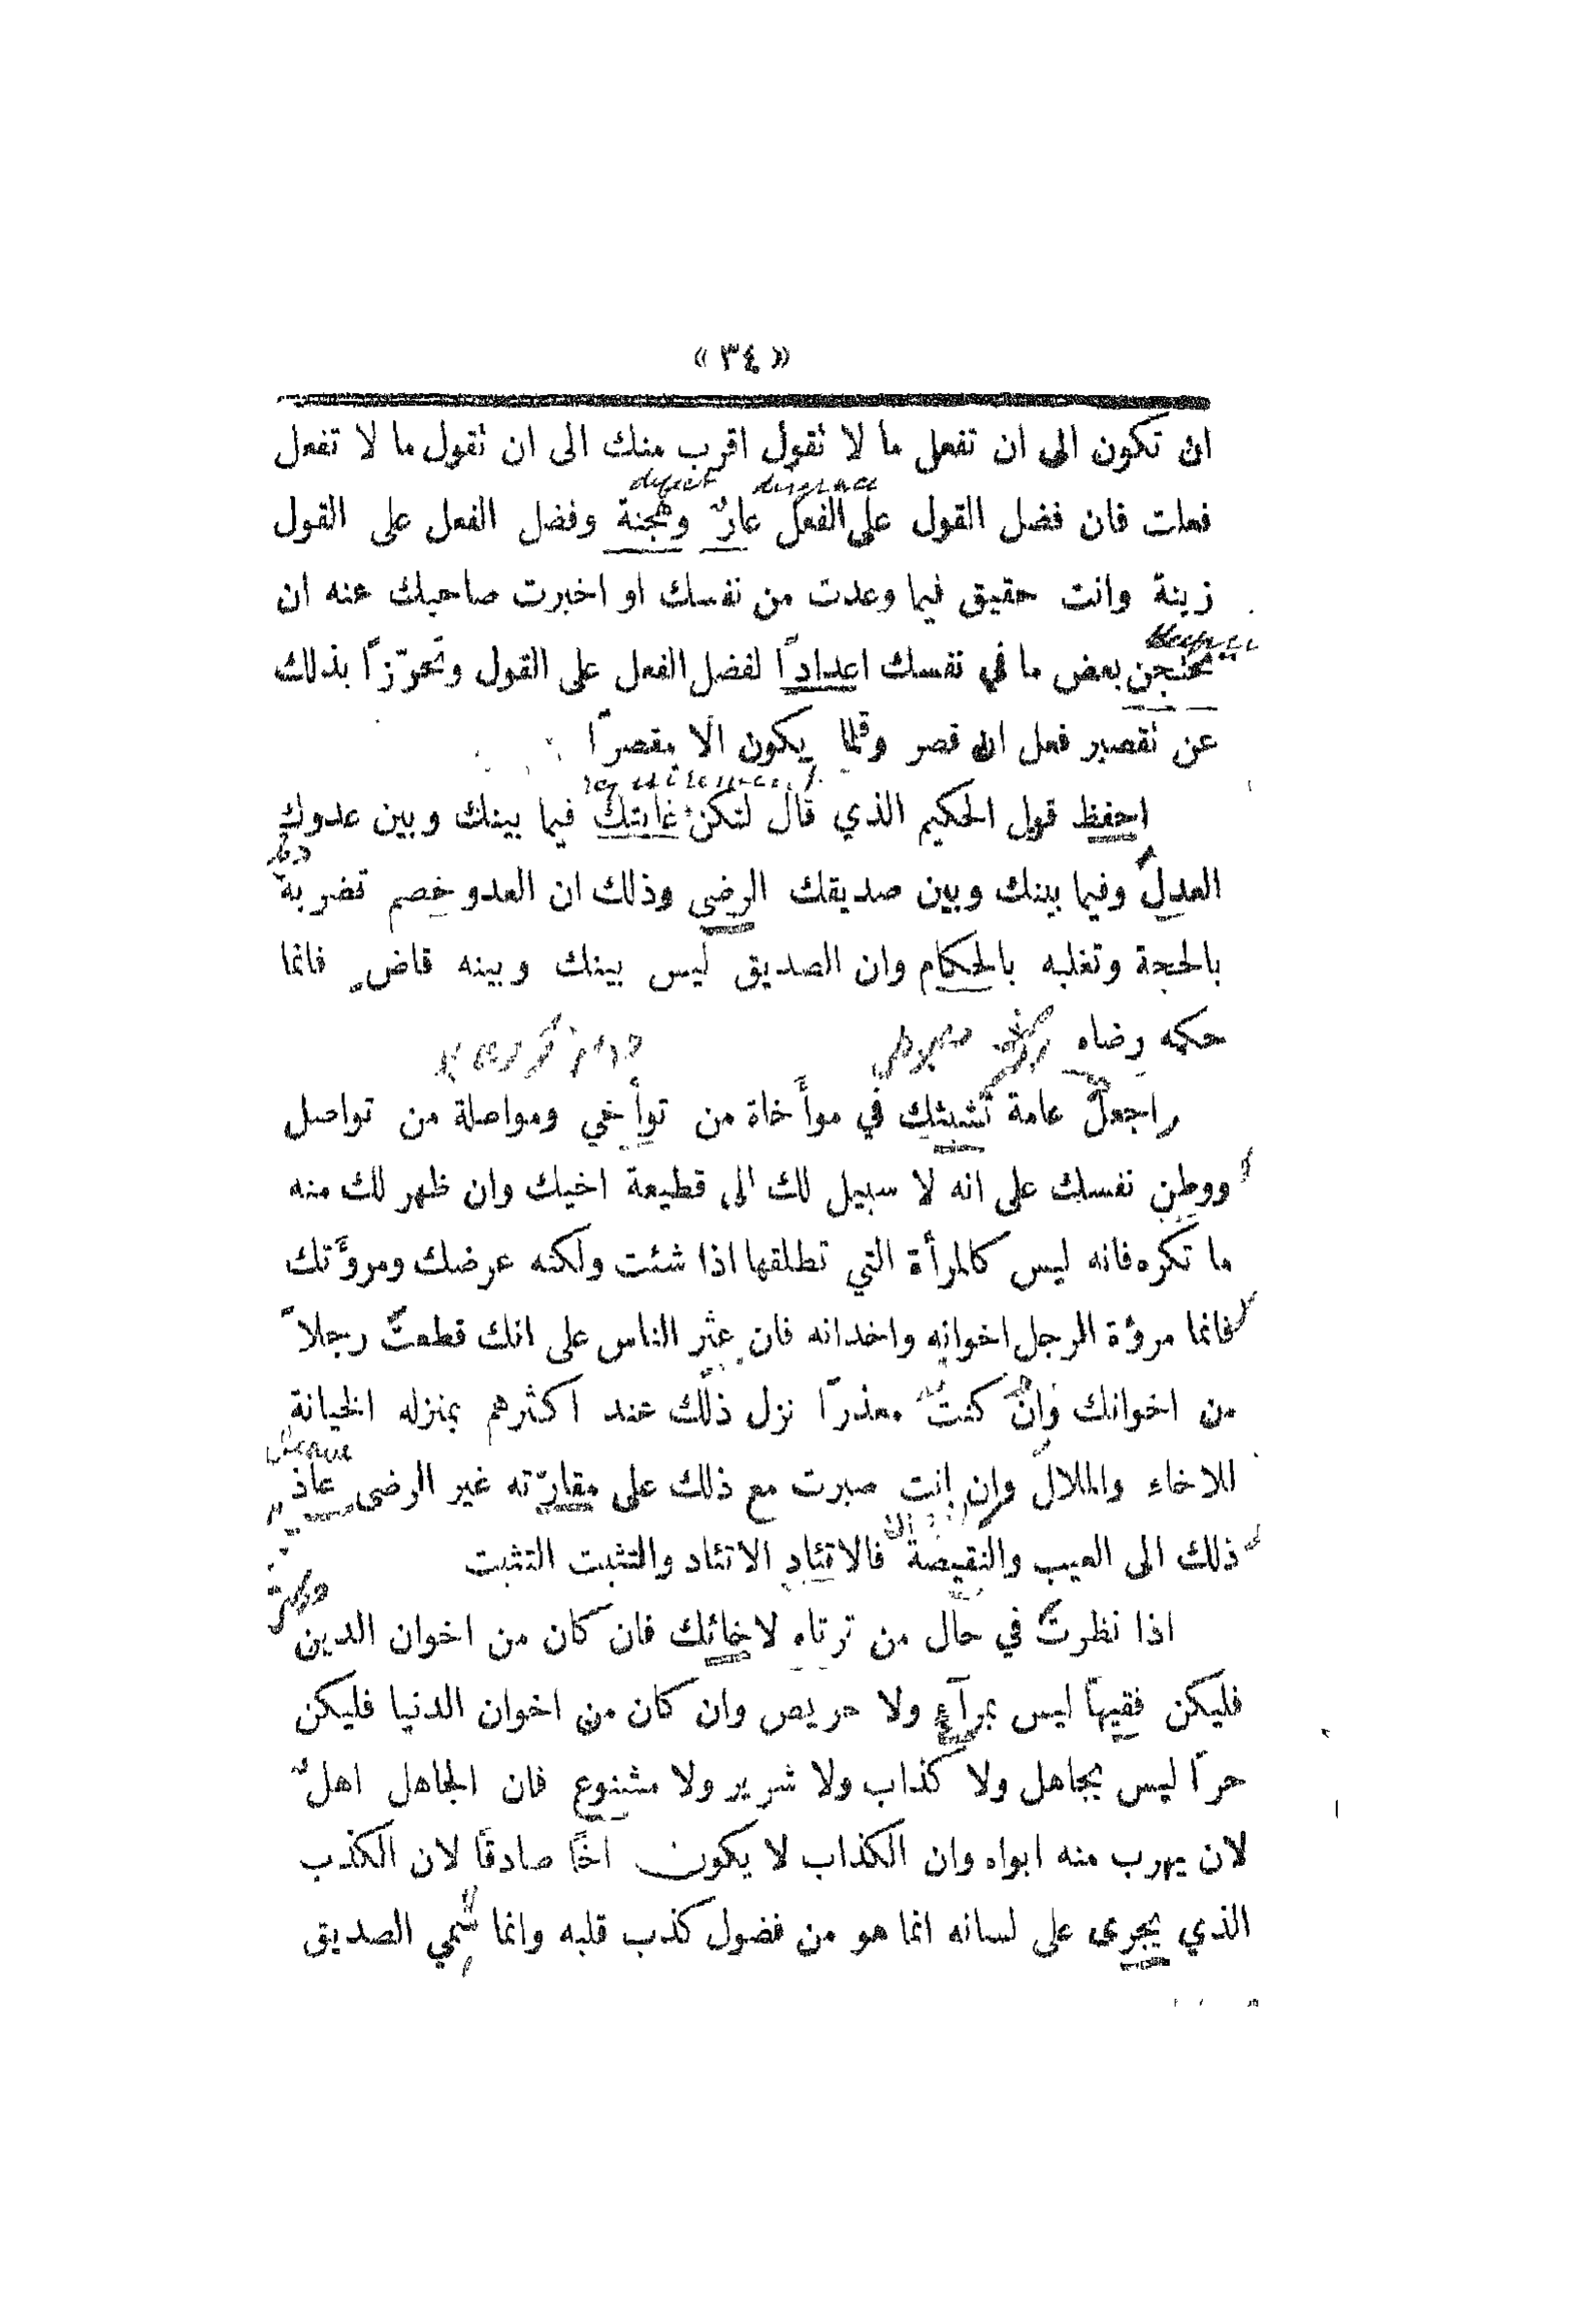 « ٣٤ »
ان تكون الى ان تفعل ما لا تقول اقرب منك الى ان تقول ما لا تفعل
defect disgrace
فعلت فان فضل القول على الفعل عارٌ وهجنة وفضل الفعل على القول
زينة وانت حقيق فيما وعدت من نفسك او اخبرت صاحبك عنه ان
تحتجن بعض ما في نفسك اعدادًا لفضل الفعل على القول وتحرّزًا بذلك
عن تقصير فعل ان قصر وقلما يكون الا مقصرًا
احفظ قول الحكيم الذي قال لتكن غايتك فيما بينك وبين عدوك
العدل وفيما بينك وبين صديقك الرضى وذلك ان العدو خصم تضربه
بالحجة وتغلبه بالحكام وان الصديق ليس بينك وبينه قاضٍ فانما
حكمه رضاه
اجعل عامة تشبثك في موأَخاة من توأخي ومواصلة من تواصل
ووطن نفسك على انه لا سبيل لك الى قطيعة اخيك وان ظهر لك منه
ما تكره فانه ليس كالمرأة التي تطلقها اذا شئت ولكنه عرضك ومروَّتك
فانما مروّة الرجل اخوانه واخدانه فان عثر الناس على انك قطعت رجلاً
من اخوانك وان كنت معذرًا نزل ذلك عند اكثرهم بمنزله الخيانة
للاخاء والملال وان انت صبرت مع ذلك على مقارّته غير الرضى عاذ
ذلك الى العيب والنقيصة فالاتئاد الاتئاد والتثبت التثبت
اذا نظرت في حال من ترتاه لاخائك فان كان من اخوان الدين
فليكن فقيهًا ليس بمرآءٍ ولا حريص وان كان من اخوان الدنيا فليكن
حرًا ليس بجاهل ولا كذاب ولا شرير ولا مشنوع فان الجاهل اهلٌ
لان يهرب منه ابواه وان الكذاب لا يكون اخًا صادقًا لان الكذب
الذي يجرى على لسانه انما هو من فضول كذب قلبه وانما سُمي الصديق